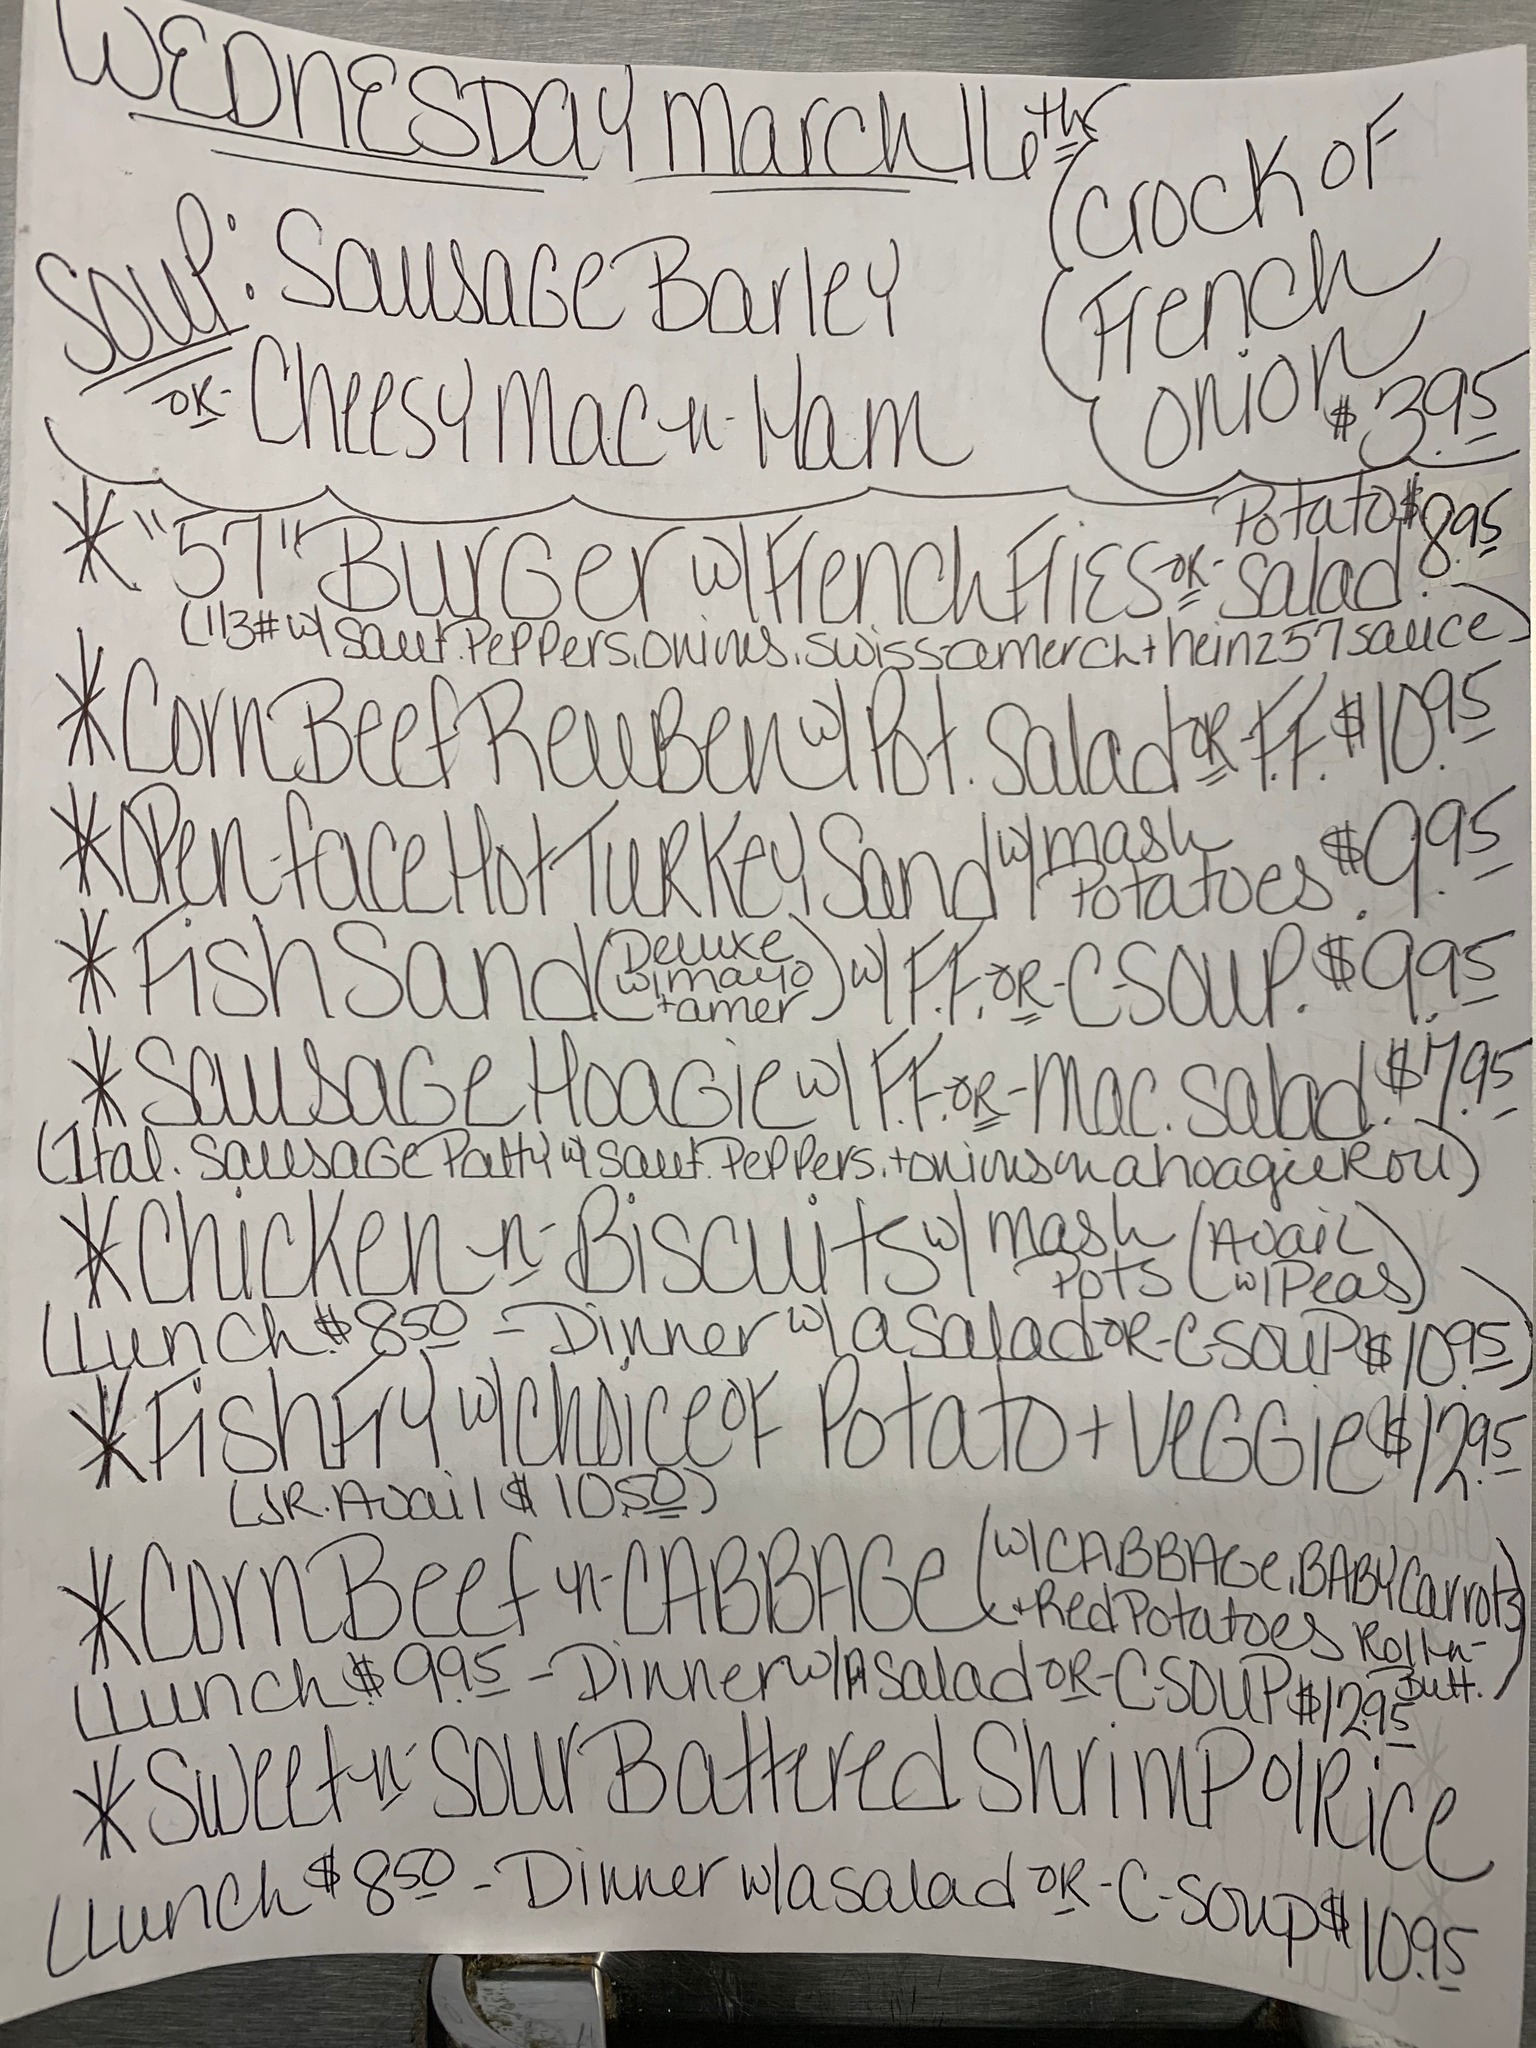 WEDNESDAY March 16th
SOUP: Sausage Barley
-OR- Cheesy Mac-n-Ham
(Crock OF
French
Onion
$3.95
* "57" Burger w/ French Fries -OR- Potato Salad. $8.95
(1/3# w/ saut. Peppers, onions, swiss-amer ch + heinz 57 sauce)
* Corn Beef Reuben w/ Pot. Salad -OR- F.F. $10.95
* Open-face Hot Turkey Sand w/ mash Potatoes. $9.95
* Fish Sand (Deluxe w/ mayo + amer) w/ F.F. -OR- C-SOUP. $9.95
* Sausage Hoagie w/ F.F. -OR- Mac. Salad. $7.95
(Ital. Sausage Patty w/ saut. Peppers, + onions on a hoagie Roll)
* Chicken -n- Biscuits w/ mash Pots (Avail w/ Peas)
(Lunch $8.50 - Dinner w/ a salad -OR- C-SOUP $10.95)
* Fish Fry w/ choice of Potato + Veggie $12.95
(JR. Avail $10.50)
* Corn Beef -n- CABBAGE (w/ CABBAGE, BABY Carrots + Red Potatoes Roll-n-Butt.)
(Lunch $9.95 - Dinner w/ A salad -OR- C-SOUP $12.95
* Sweet -n- Sour Battered Shrimp o/ Rice
(Lunch $8.50 - Dinner w/ a salad -OR- C-soup $10.95